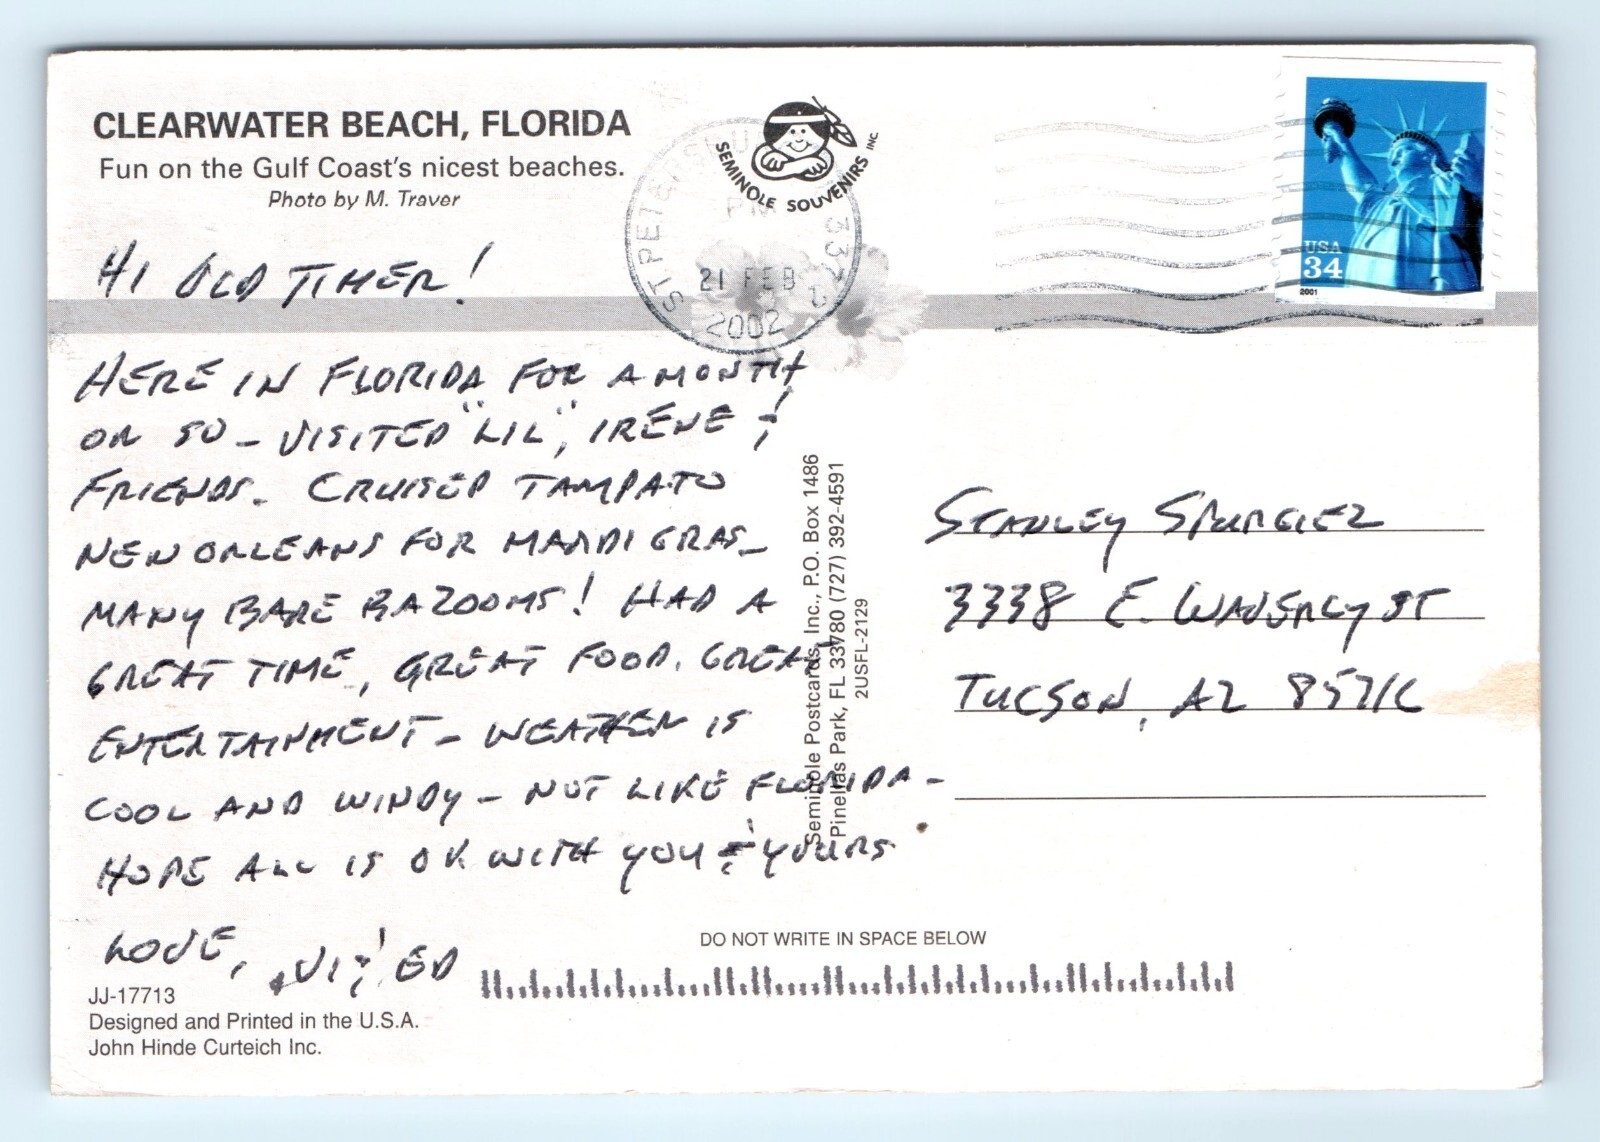 CLEARWATER BEACH, FLORIDA
Fun on the Gulf Coast's nicest beaches.
Photo by M. Traver
SEMINOLE SOUVENIRS INC.
ST PETERSBURG
PM
337
21 FEB
2002
USA
34
2001
HI OLD TIMER!
HERE IN FLORIDA FOR A MONTH
OR SO - VISITED "LIL", IRENE &
FRIENDS. CRUISED TAMPA TO
NEW ORLEANS FOR MARDI GRAS -
MANY BARE BAZOOMS! HAD A
GREAT TIME, GREAT FOOD, GREAT
ENTERTAINMENT - WEATHER IS
COOL AND WINDY - NOT LIKE FLORIDA -
HOPE ALL IS OK WITH YOU & YOURS
LOVE, VI & ED
Seminole Postcards, Inc., P.O. Box 1486
Pinellas Park, FL 33780 (727) 392-4591
2USFL-2129
STANLEY
3338 E. WAVERLY ST
TUCSON, AZ 85716
DO NOT WRITE IN SPACE BELOW
JJ-17713
Designed and Printed in the U.S.A.
John Hinde Curteich Inc.